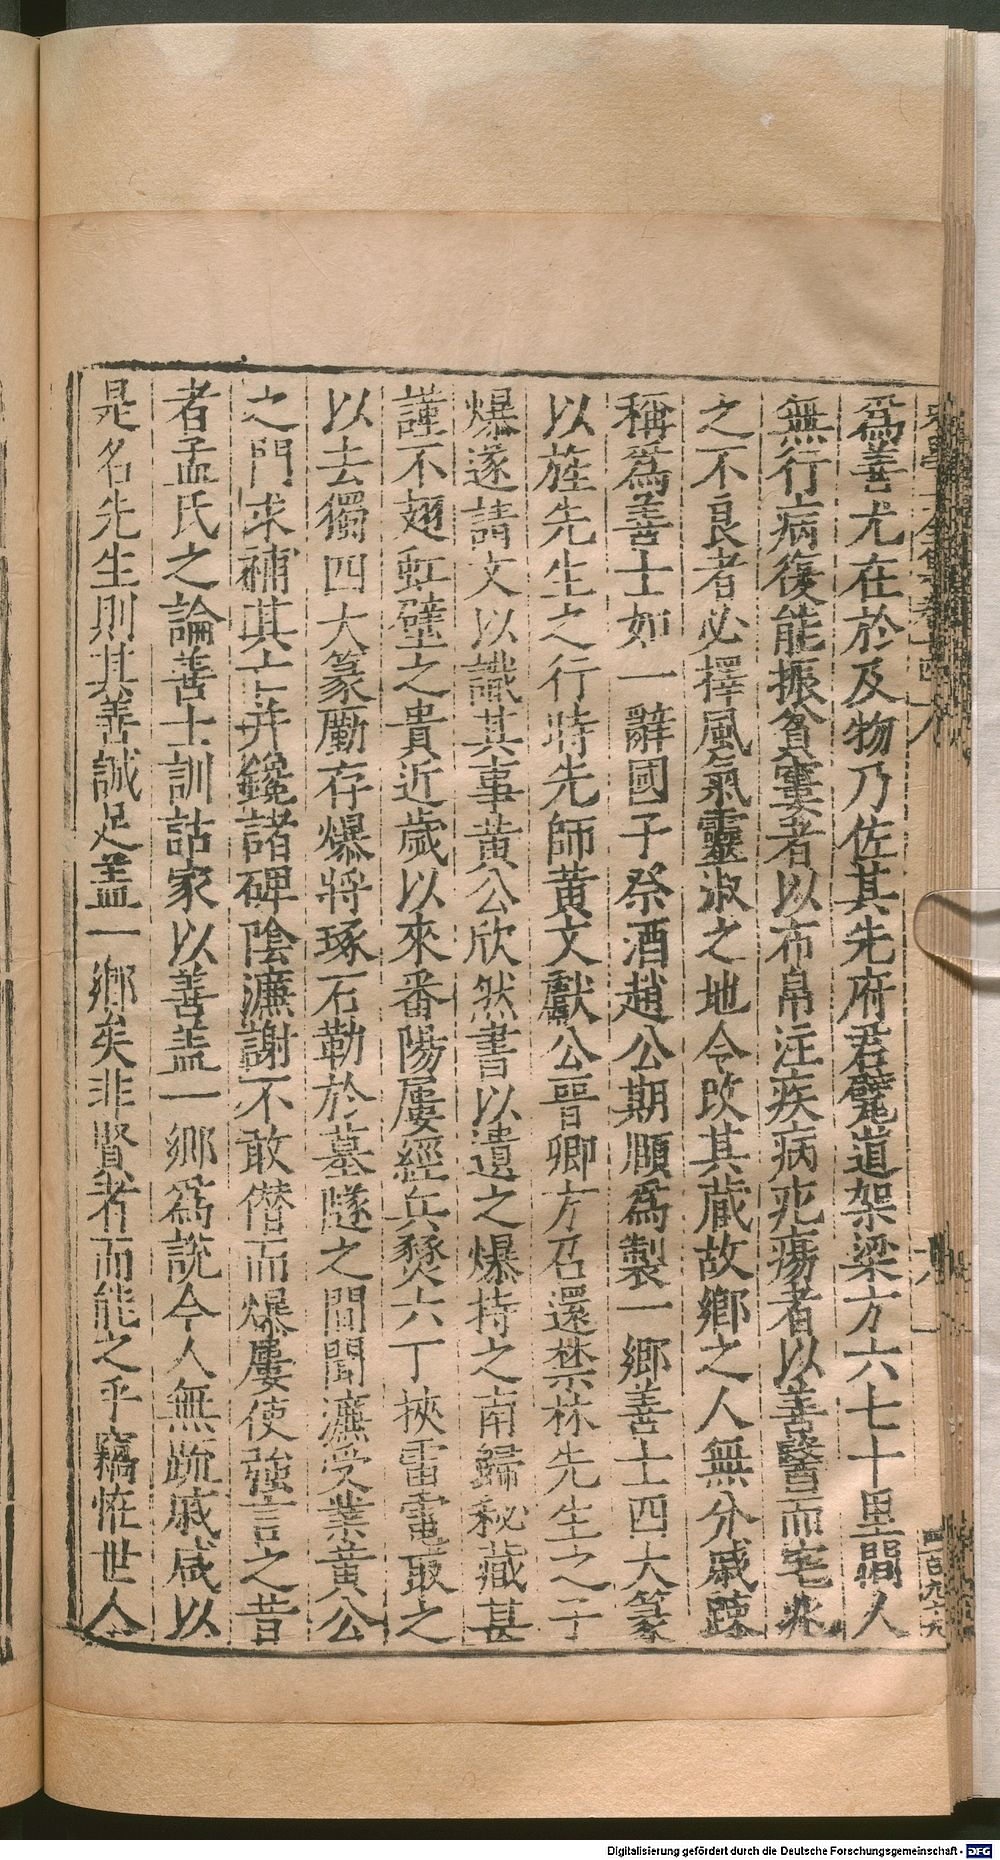 爲善尤在於及物乃佐其先府君甓道架梁方六七十里間人
無行病復能振貧窶者以布帛注疾病疕瘍者以善醫而宅兆
之不良者必擇風氣靈淑之地令改其藏故鄉之人無分戚疎
稱爲善士如一辭國子祭酒趙公期頤爲製一鄉善士四大篆
以旌先生之行時先師黄文獻公晉卿方召還禁林先生之子
爆遂請文以識其事黄公欣然書以遺之爆持之南歸秘藏甚
謹不翅虹璧之貴近歲以來番陽屢經兵燹六丁挾雷電㝡之
以去獨四大篆勵存爆將琢石勒於墓隧之間聞濂受業黄公
之門求補其亡并鑱諸碑陰濂謝不敢僭而爆屢使強言之昔
者孟氏之論善士訓詁家以善盖一鄉爲說今人無䟽戚咸以
是名先生則其善誠足盖一鄉矣非賢者而能之乎竊怪世人
四百九十九
Digitalisierung gefördert durch die Deutsche Forschungsgemeinschaft - DFG